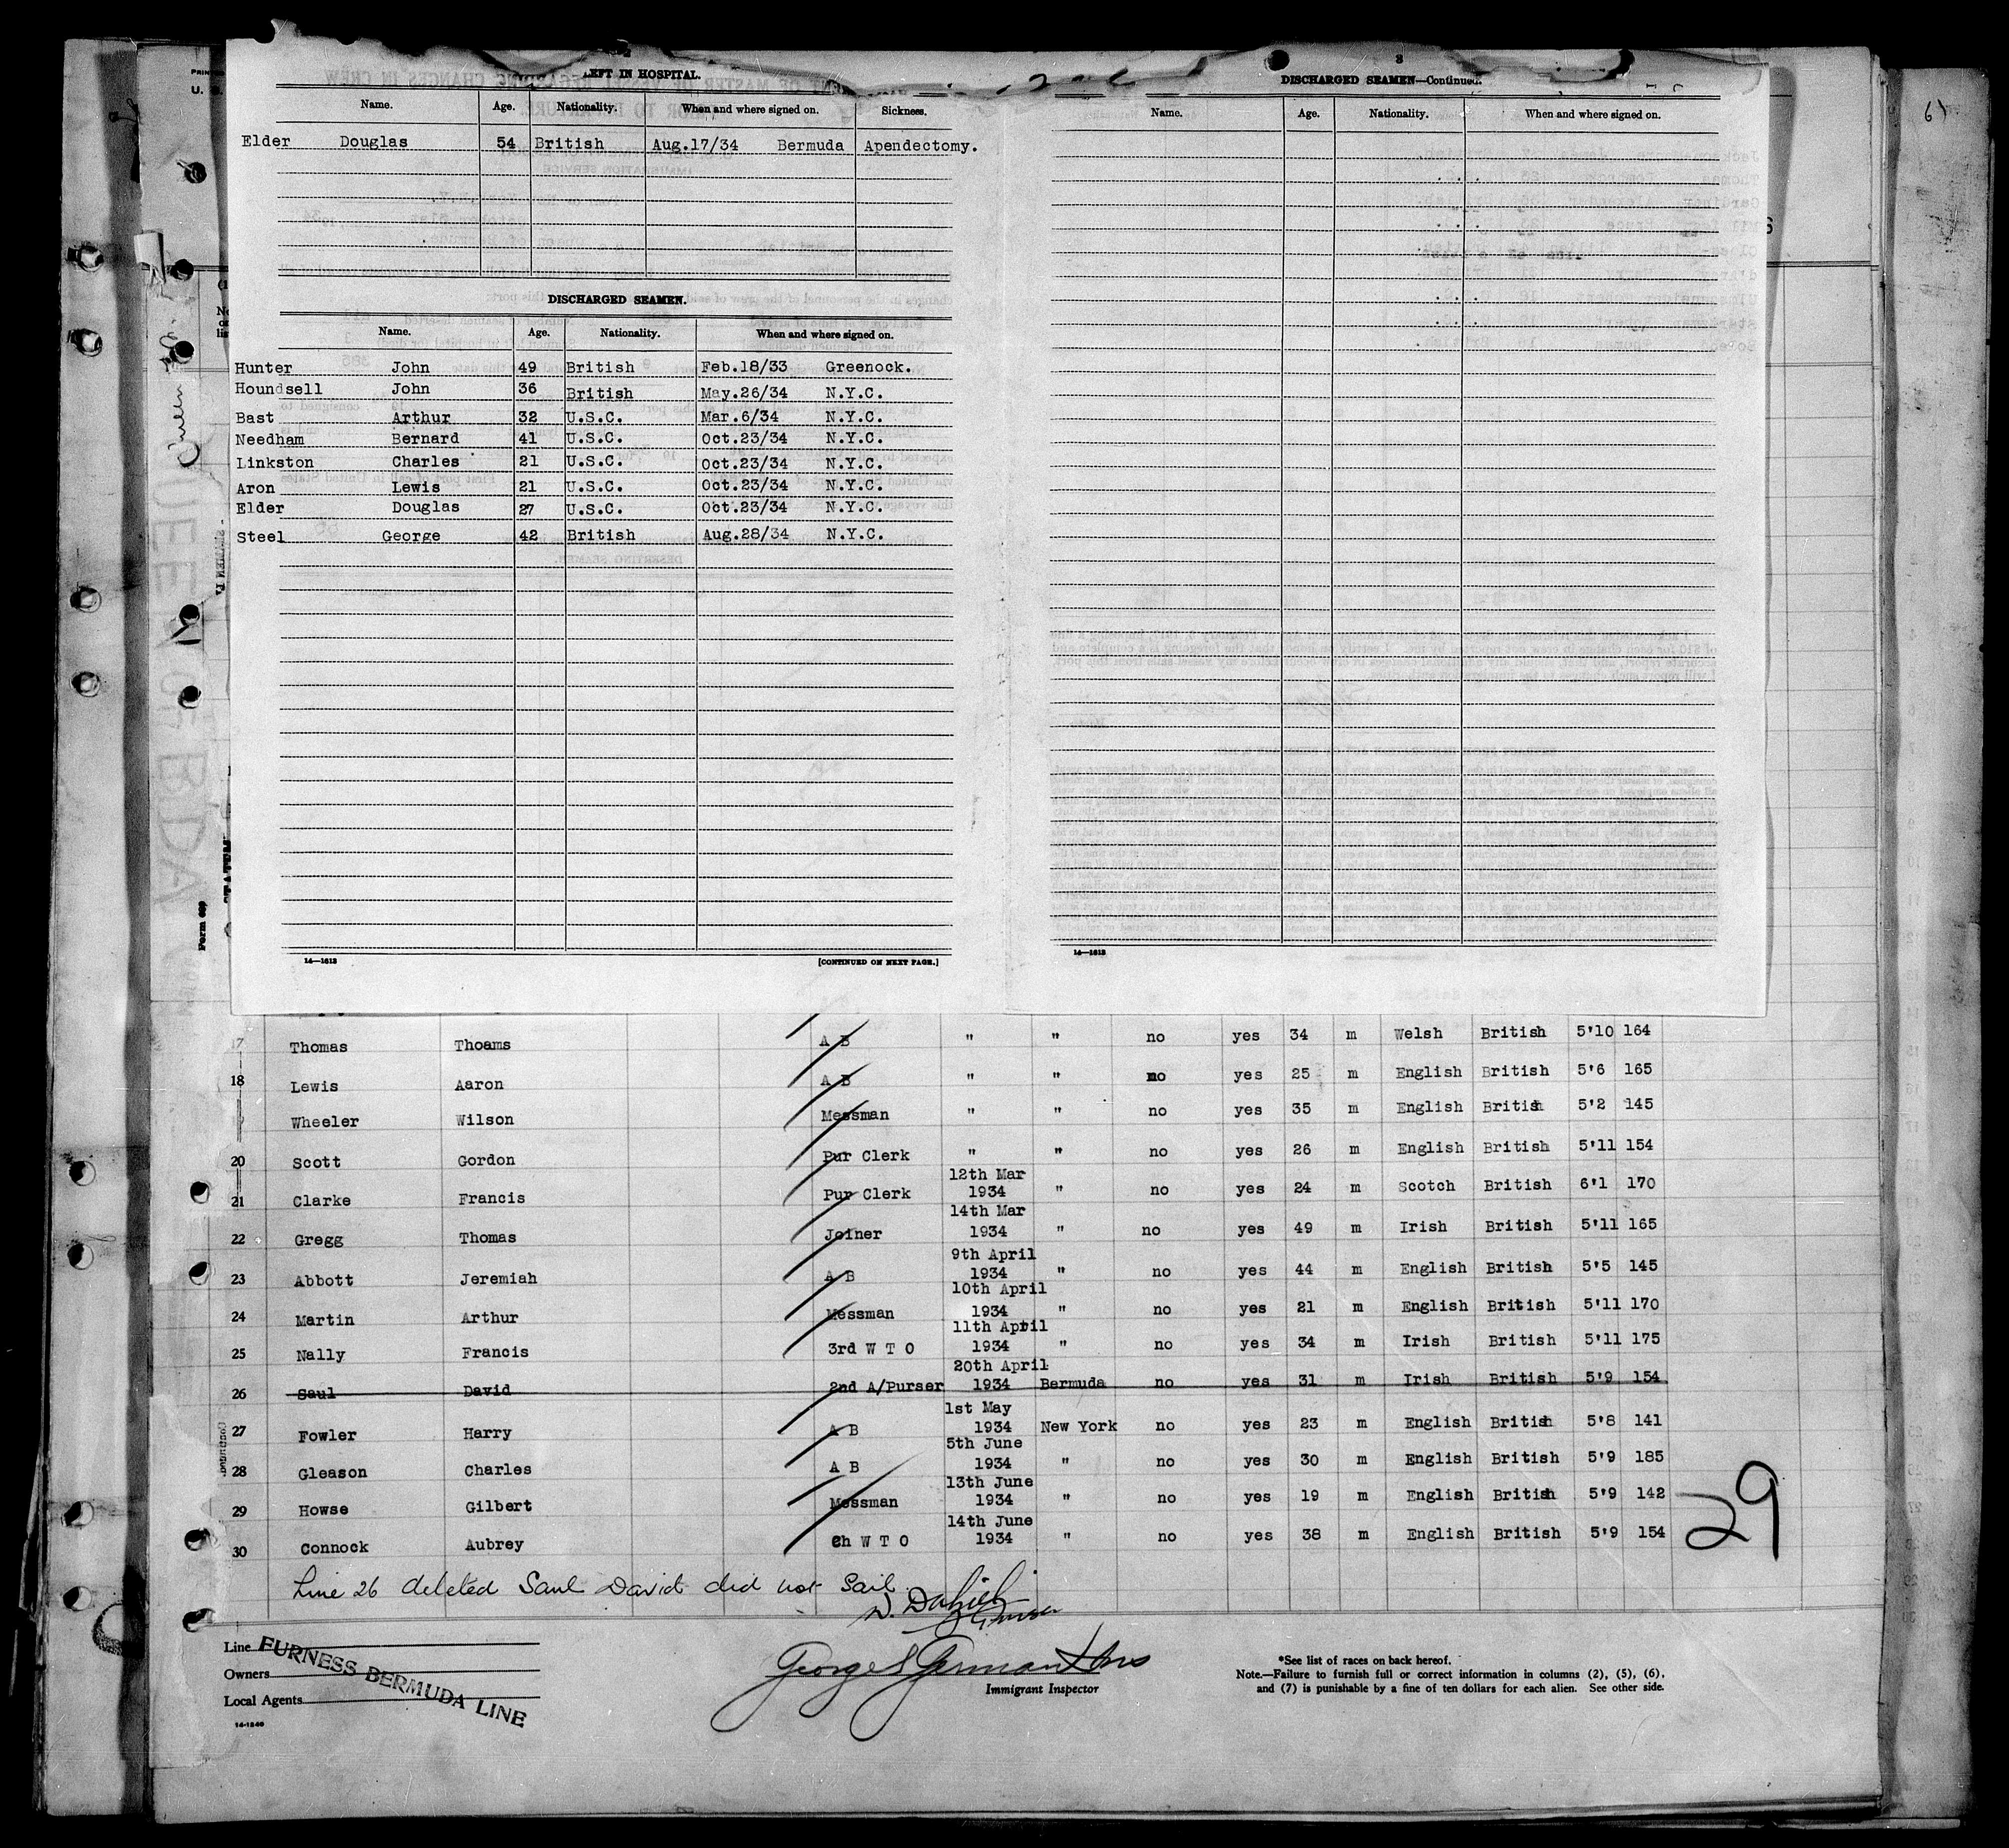 LEFT IN HOSPITAL.
Name. Age. Nationality. When and where signed on. Sickness.
Elder Douglas 54 British Aug.17/34 Bermuda Apendectomy.
DISCHARGED SEAMEN.
Name. Age. Nationality. When and where signed on.
Hunter John 49 British Feb.18/33 Greenock.
Houndsell John 36 British May.26/34 N.Y.C.
Bast Arthur 32 U.S.C. Mar.6/34 N.Y.C.
Needham Bernard 41 U.S.C. Oct.23/34 N.Y.C.
Linkston Charles 21 U.S.C. Oct.23/34 N.Y.C.
Aron Lewis 21 U.S.C. Oct.23/34 N.Y.C.
Elder Douglas 27 U.S.C. Oct.23/34 N.Y.C.
Steel George 42 British Aug.28/34 N.Y.C.
14—1613
[CONTINUED ON NEXT PAGE.]
3
DISCHARGED SEAMEN—Continued.
Name. Age. Nationality. When and where signed on.
14—1613
Form 689
17 Thomas Thoams A B " " no yes 34 m Welsh British 5'10 164
18 Lewis Aaron A B " " no yes 25 m English British 5'6 165
Wheeler Wilson Messman " " no yes 35 m English British 5'2 145
20 Scott Gordon Pur Clerk " " no yes 26 m English British 5'11 154
21 Clarke Francis Pur Clerk 12th Mar 1934 " no yes 24 m Scotch British 6'1 170
22 Gregg Thomas Joiner 14th Mar 1934 " no yes 49 m Irish British 5'11 165
23 Abbott Jeremiah A B 9th April 1934 " no yes 44 m English British 5'5 145
24 Martin Arthur Messman 10th April 1934 " no yes 21 m English British 5'11 170
25 Nally Francis 3rd W T O 11th April 1934 " no yes 34 m Irish British 5'11 175
26 Saul David 2nd A/Purser 20th April 1934 Bermuda no yes 31 m Irish British 5'9 154
27 Fowler Harry A B 1st May 1934 New York no yes 23 m English British 5'8 141
28 Gleason Charles A B 5th June 1934 " no yes 30 m English British 5'9 185
29 Howse Gilbert Messman 13th June 1934 " no yes 19 m English British 5'9 142
30 Connock Aubrey Ch W T O 14th June 1934 " no yes 38 m English British 5'9 154
29
Line 26 deleted Saul David did not Sail.
Purser
Line
Owners
Local Agents
FURNESS BERMUDA LINE
14-1240
George S German
Immigrant Inspector
*See list of races on back hereof.
Note.—Failure to furnish full or correct information in columns (2), (5), (6),
and (7) is punishable by a fine of ten dollars for each alien. See other side.